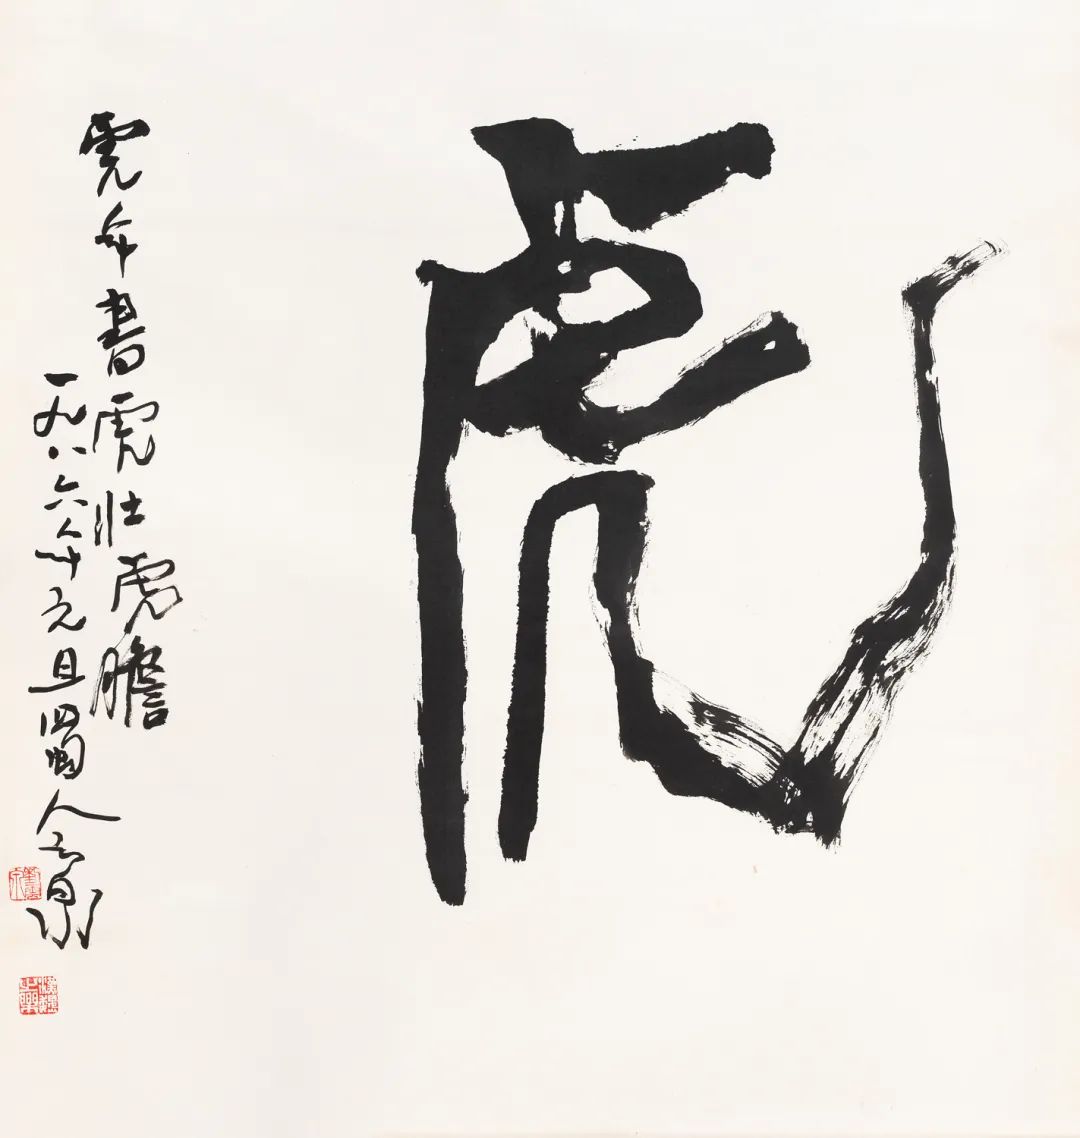 虎
虎年書虎壮虎膽
一九八六年元旦蜀人云泉